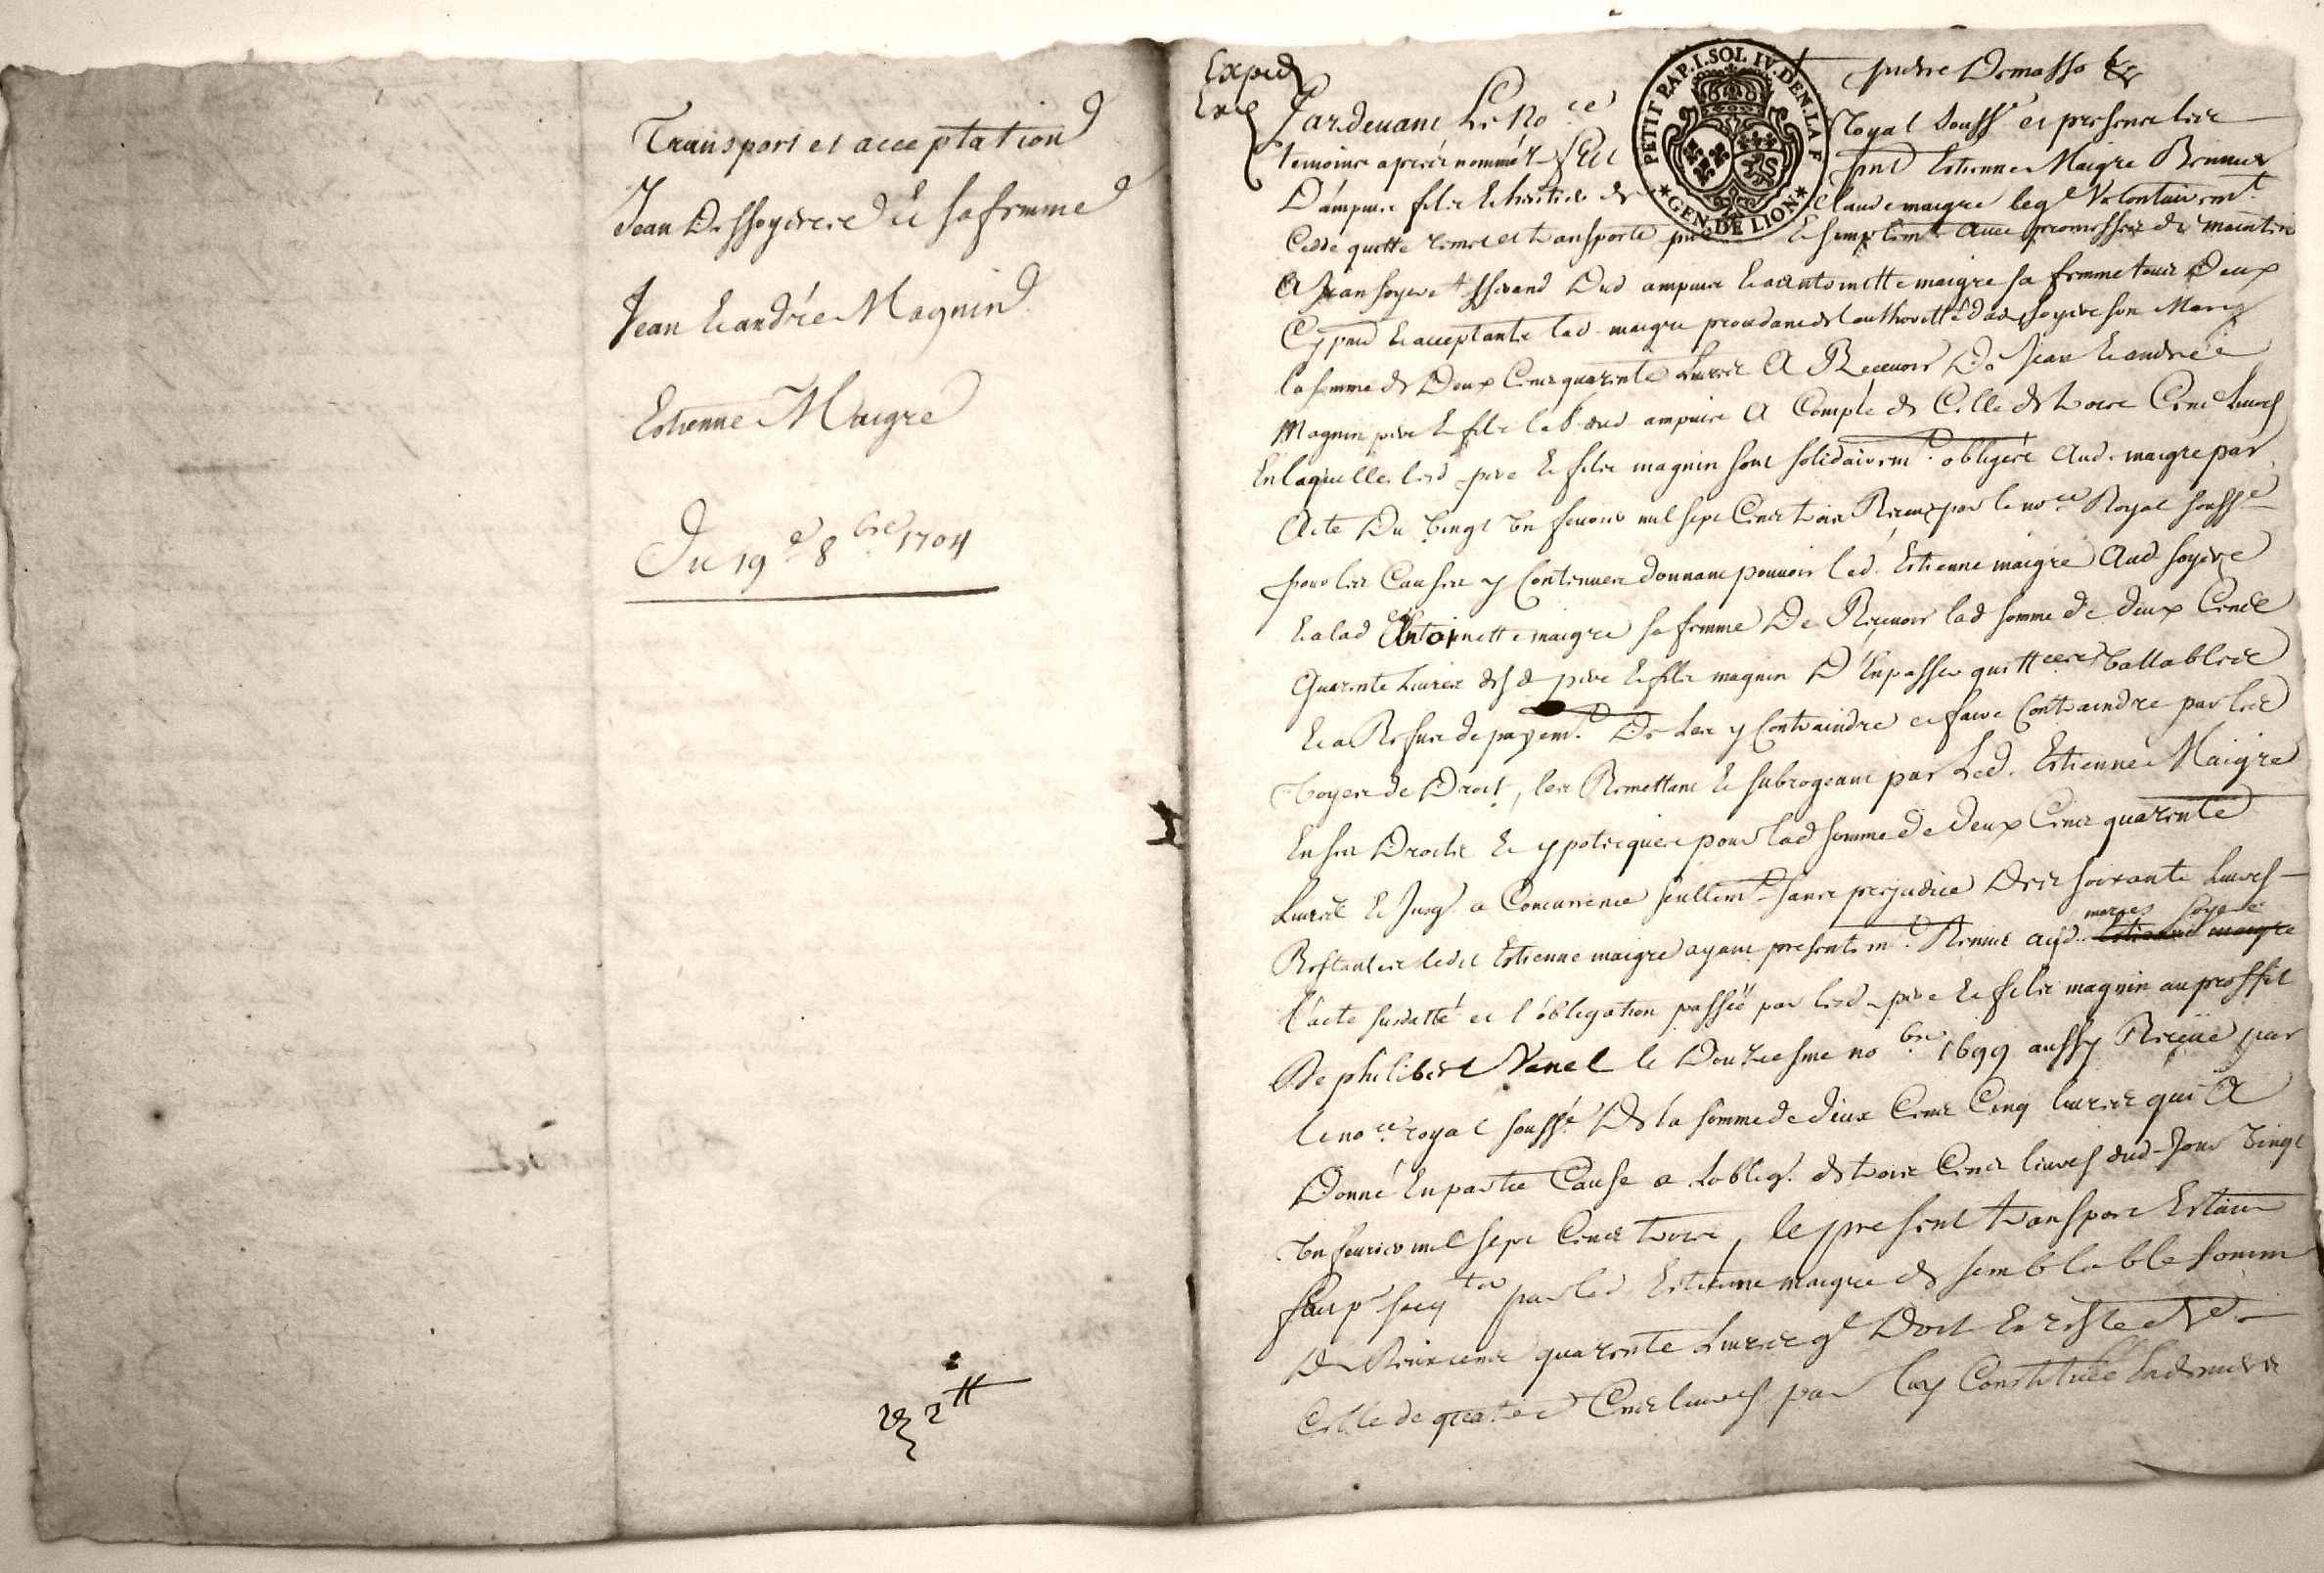 Transport et acceptation
Jean Dessoyere et sa femme
Jean et andré Magnin
Estienne Maigre
Du 19e 8bre 1704
2tt
Exped
PETIT PAP. I. SOL IV. DEN. LA F
GEN. DE LION
Pardevant Le Nore Royal soussé et presens les
temoins apres nommés fut present Estienne Maigre
D'ampuis fils et heritier de Claude maigre leql Volontairemt
Cedde quitte remet et transporte purement et simplemt avec promesses de maintenir
A Jean soyere dud ampuis et a antoinette maigre sa femme tous Deux
Cy pnts et acceptants lad. maigre procedant de l'authoritté dud soyere son Mary
la somme de Deux Cens quarente Livres A Recevoir De Jean et andré
Magnin pere et fils dud ampuis A Compte de Celle de trois Cens Livres
En laquelle lesd. pere et fils magnin sont solidairemt obligés Aud. maigre par
Acte Du Vingt Un fevrier mil sept Cens trois Receu par le nore Royal soussé
pour les Causes y Contenues donnant pouvoir led. Estienne maigre Aud soyere
et a lad Antoinette maigre sa femme De Recevoir lad somme de deux Cens
Quarente Livres desd pere et fils magnin D'En passer quittces Vallables
et a Refus de payemt De Les y Contraindre et faire Contraindre par les
Voyes de Droit, les Remettant et subrogeant par Led. Estienne Maigre
En ses Droits et ypoteques pour lad somme de deux Cens quarente
Livres et Jusq. a Concurrence seullemt sans prejudice Des soixante Livres
Restantes ledit Estienne maigre ayant presentemt Remis auxd. maries soyere
l'acte susdatté et l'obligation passée par lesd. pere et fils magnin au proffit
De philibert Vanel le Douziesme nobre 1699 aussy Receüe par
le nore royal soussé De la somme de deux Cens Cinq livres qui A
Donné En partie Cause a l'oblig. de trois Cens livres dud. Jour Vingt
Un fevrier mil sept Cens trois, le present transport Estant
fait par led Estienne maigre de semblable somme
De Deux cens quarente Livres ql Doit En reste de
Celle de quatre Cens livres par luy Constituée